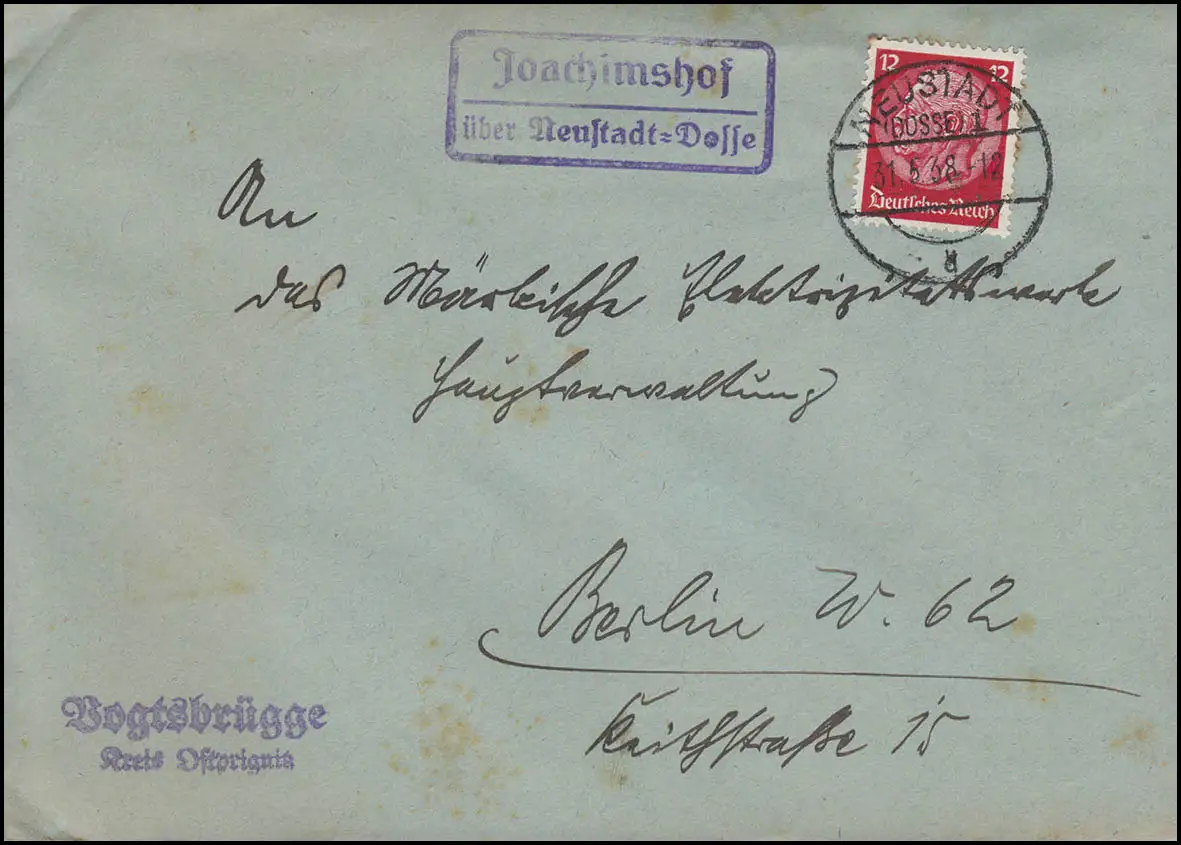 Joachimshof
über Neustadt=Dosse
12 12
Deutsches Reich
NEUSTADT
(DOSSE) 1
31.5.38.-12
An
das Märkische Elektrizitätswerk
Hauptverwaltung
Berlin W. 62
Keithstraße 15
Vogtsbrügge
Kreis Ostprignitz